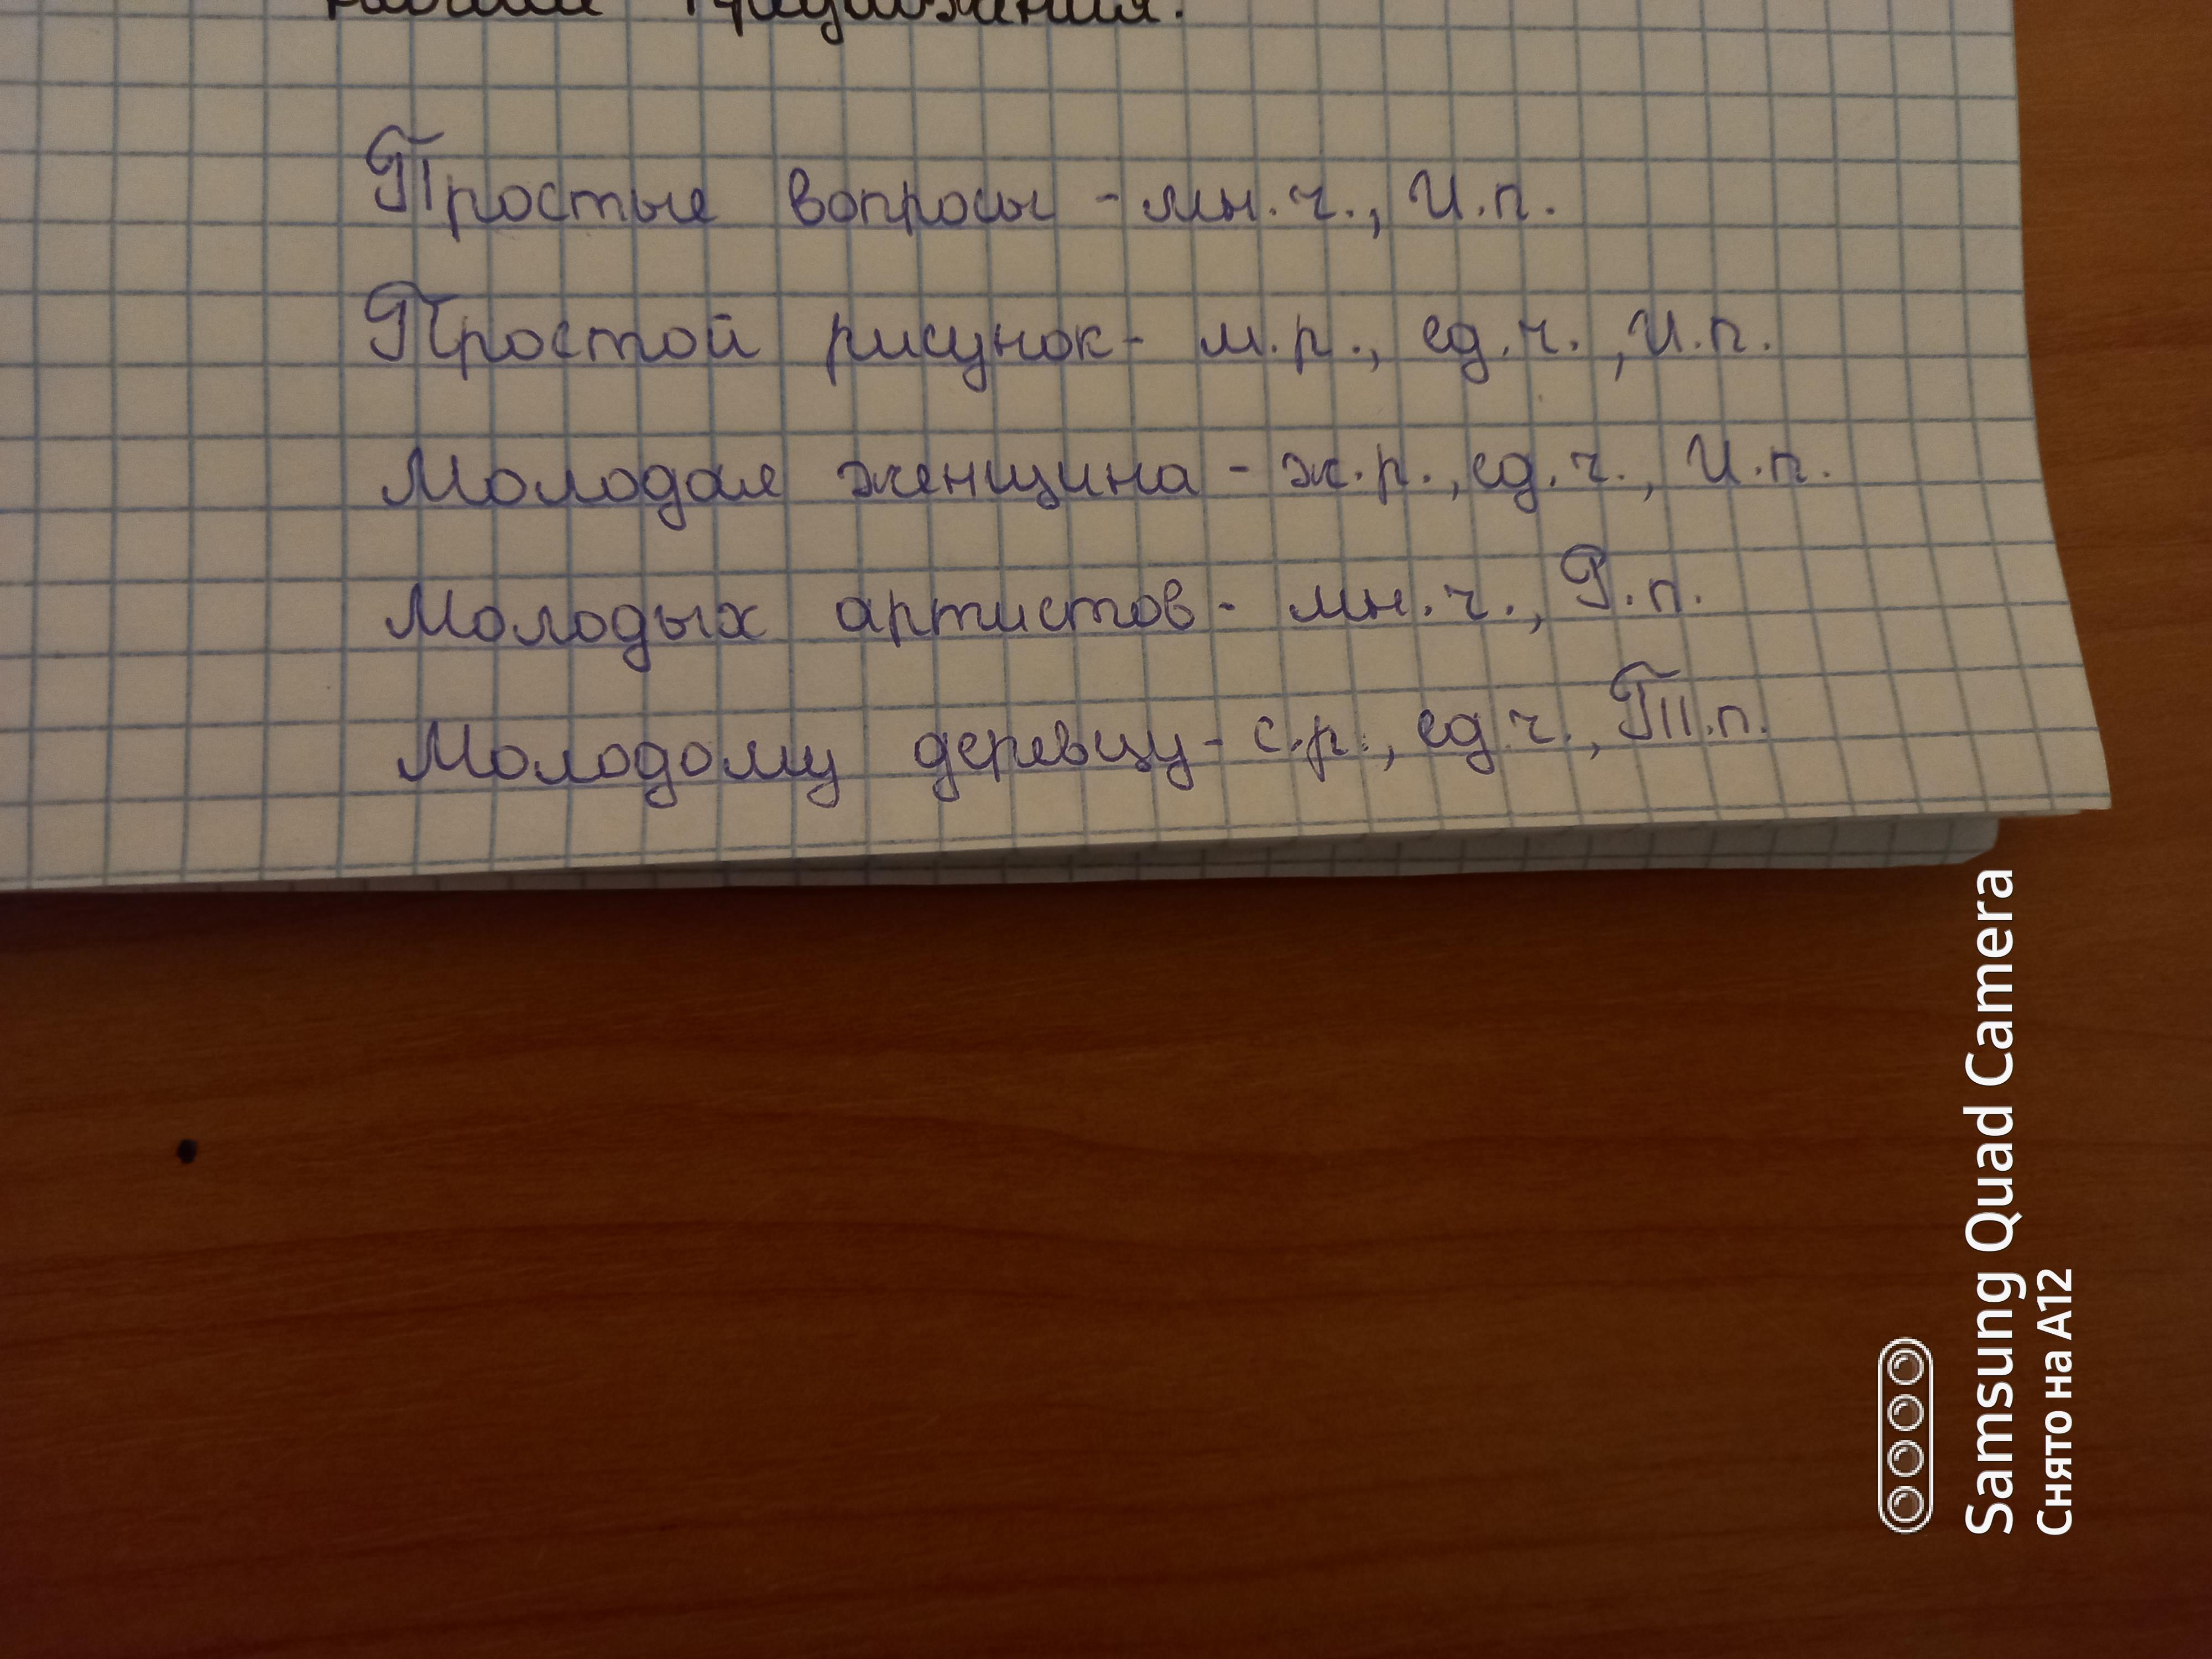 Простые вопросы - мн.ч., И.п.
Простой рисунок - м.р., ед.ч., И.п.
Молодая женщина - ж.р., ед.ч., И.п.
Молодых артистов - мн.ч., Р.п.
Молодому деревцу - с.р., ед.ч., Т.п.
Samsung Quad Camera
Снято на A12